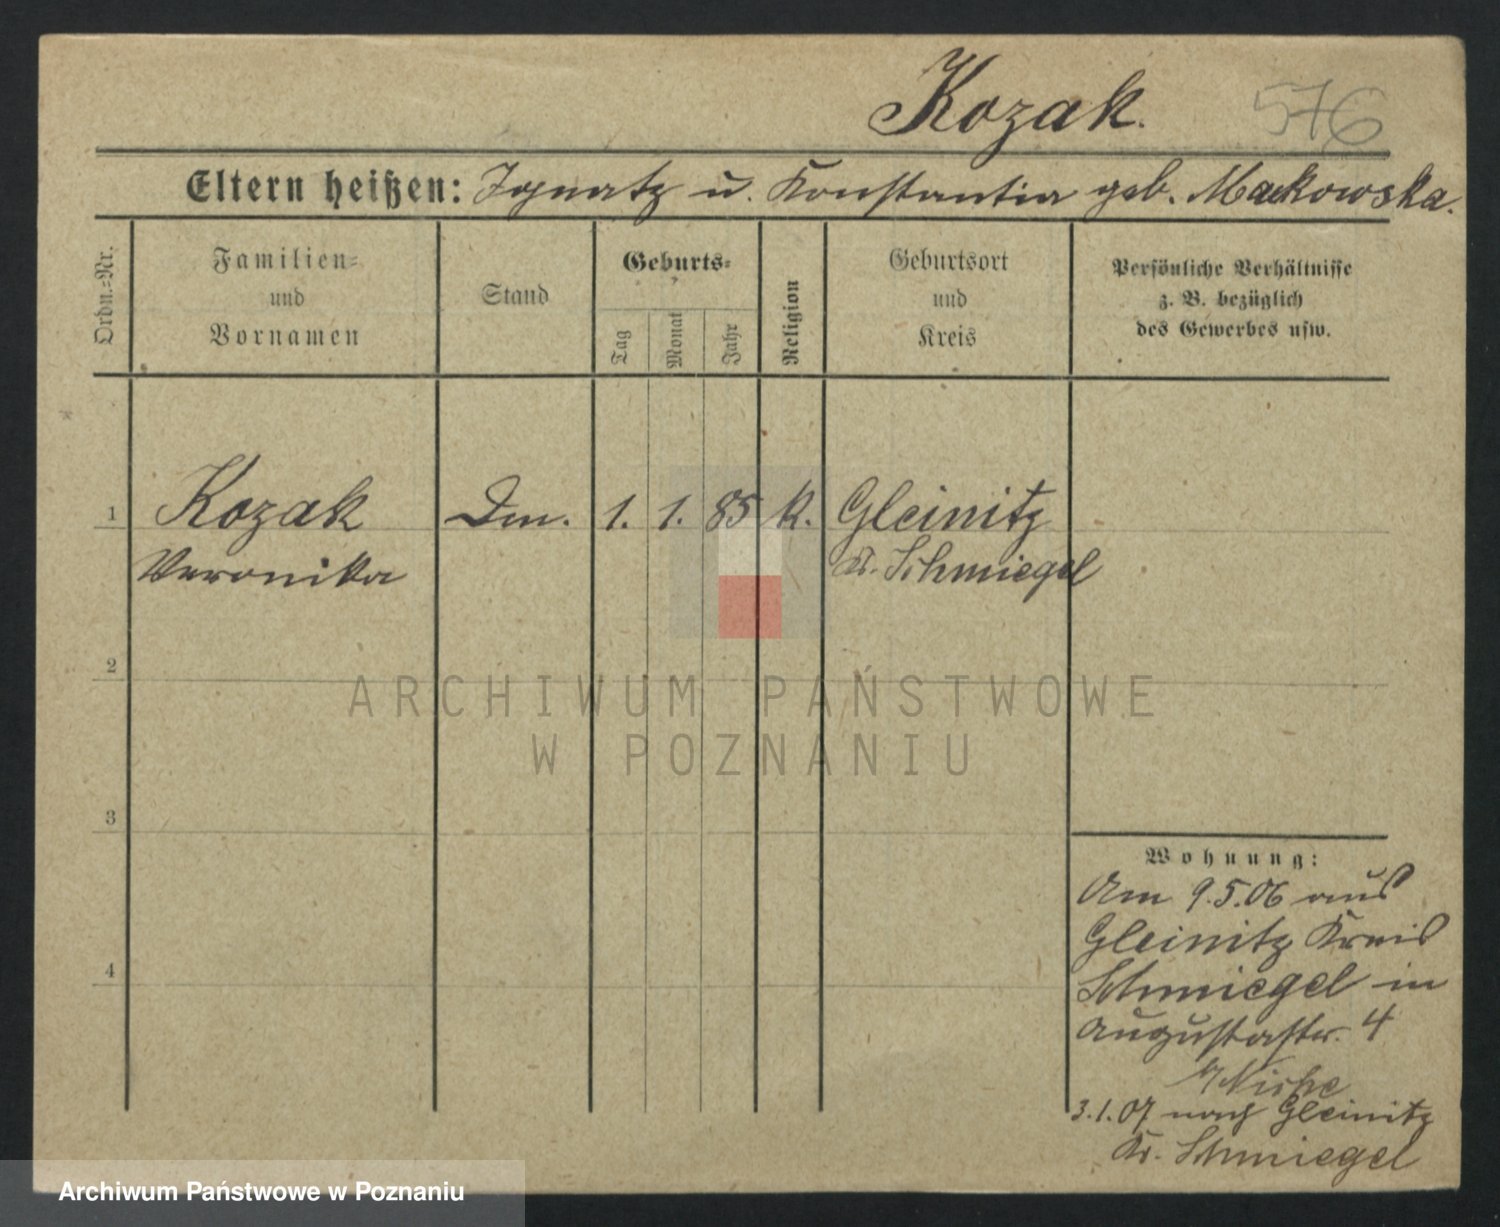 Kozak. 576
Eltern heißen: Ignatz u. Konstantia geb. Mackowska.
Ordn.=Nr.
Familien=
und
Vornamen
Stand
Geburts=
Tag
Monat
Jahr
Religion
Geburtsort
und
Kreis
Persönliche Verhältnisse
z. B. bezüglich
des Gewerbes usw.
1 Kozak Dm. 1. 1. 85 k. Gleinitz
Veronika Kr. Schmiegel
2
3
4
Wohnung:
Am 9.5.06 aus
Gleinitz Kreis
Schmiegel in
Augustastr. 4
3.1.07 nach Gleinitz
Kr. Schmiegel
ARCHIWUM PAŃSTWOWE
W POZNANIU
Archiwum Państwowe w Poznaniu